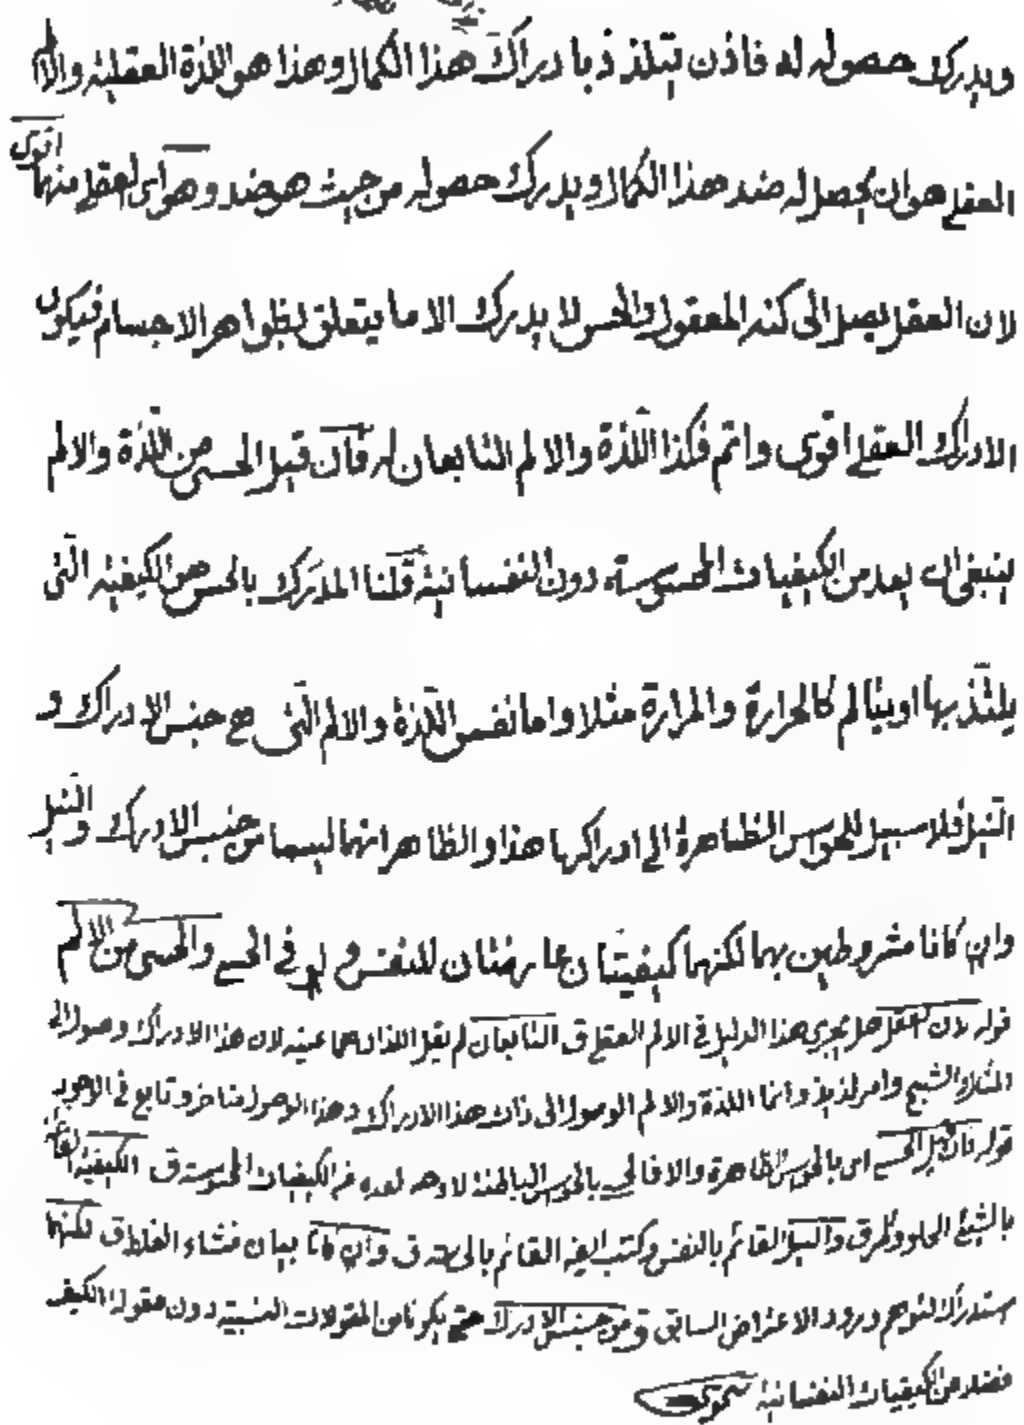 ويدرك حصوله له فاذن يتلذذ بادراك هذا الكمال وهذا هو اللذة العقلية والالم
العقلي هو ان يحصل له ضد هذا الكمال ويدرك حصوله من حيث هو ضد وهو اى العقلي منهما اقوى
لان العقل يصل الى كنه المعقول والحس لا يدرك الا ما يتعلق بظواهر الاجسام فيكون
الادراك العقلي اقوى واتم فكذا اللذة والالم التابعان له فان قيل الحسى من اللذة والالم
ينبغى ان يعد من الكيفيات المحسوسة دون النفسانية قلنا المدرك بالحس هو الكيفية التى
يلتذ بها او يتألم كالحرارة والمرارة مثلا واما نفس اللذة والالم التى هى جنس الادراك و
النيل فلا سبيل للحواس الظاهرة الى ادراكها هذا والظاهر انهما ليسا من جنس الادراك والنيل
وان كانا مشروطين بهما لكنهما كيفيتان عارضتان للنفس وليس فى الحس والحسى من الالم
قوله لان العقل هل يجرى هذا الدليل فى الالم العقلي ق التابعان لم يقل اللذان هما عينه لان هذا الادراك وصول الى
الشبح وامر لذيذ وانما اللذة والالم الوصول الى ذات هذا الادراك وهذا الوصول متاخر وتابع فى الوجود
قوله فان قيل الحسى اى بالحواس الظاهرة والا فالحسى بالحواس الباطنة لا وجه لعده من الكيفيات المحسوسة ق الكيفية القائمة
بالشيئ الحلو والمر ق والنيل القائم بالنفس وكتب ايضا القائم بالحس ق وان كانا بيان منشاء الغلط ق لكنهما
استدراك لتوهم ورود الاعتراض السابق ق من جنس الادراك حتى يكونا من المقولات النسبية دون مقولة الكيف
فضلا من الكيفيات النفسانية